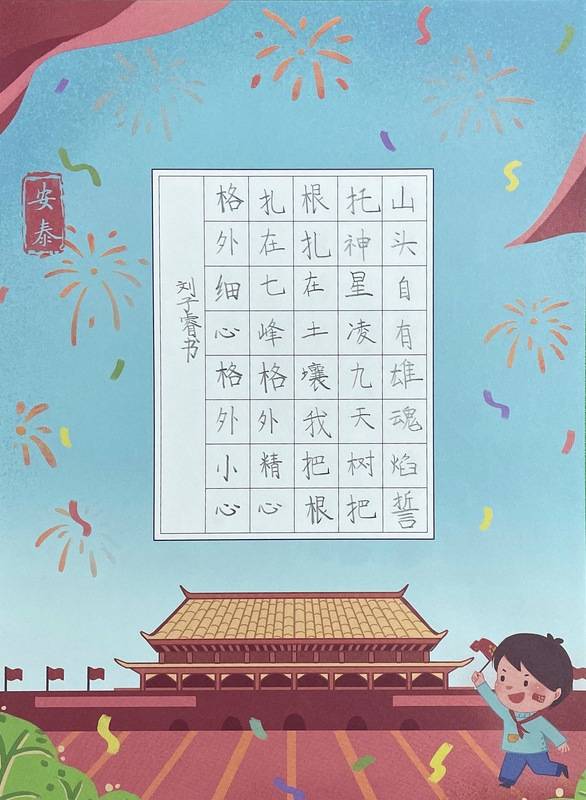 山头自有雄魂焰誓
托神星凌九天树把
根扎在土壤我把根
扎在七峰格外精心
格外细心格外小心
刘子睿书
安泰